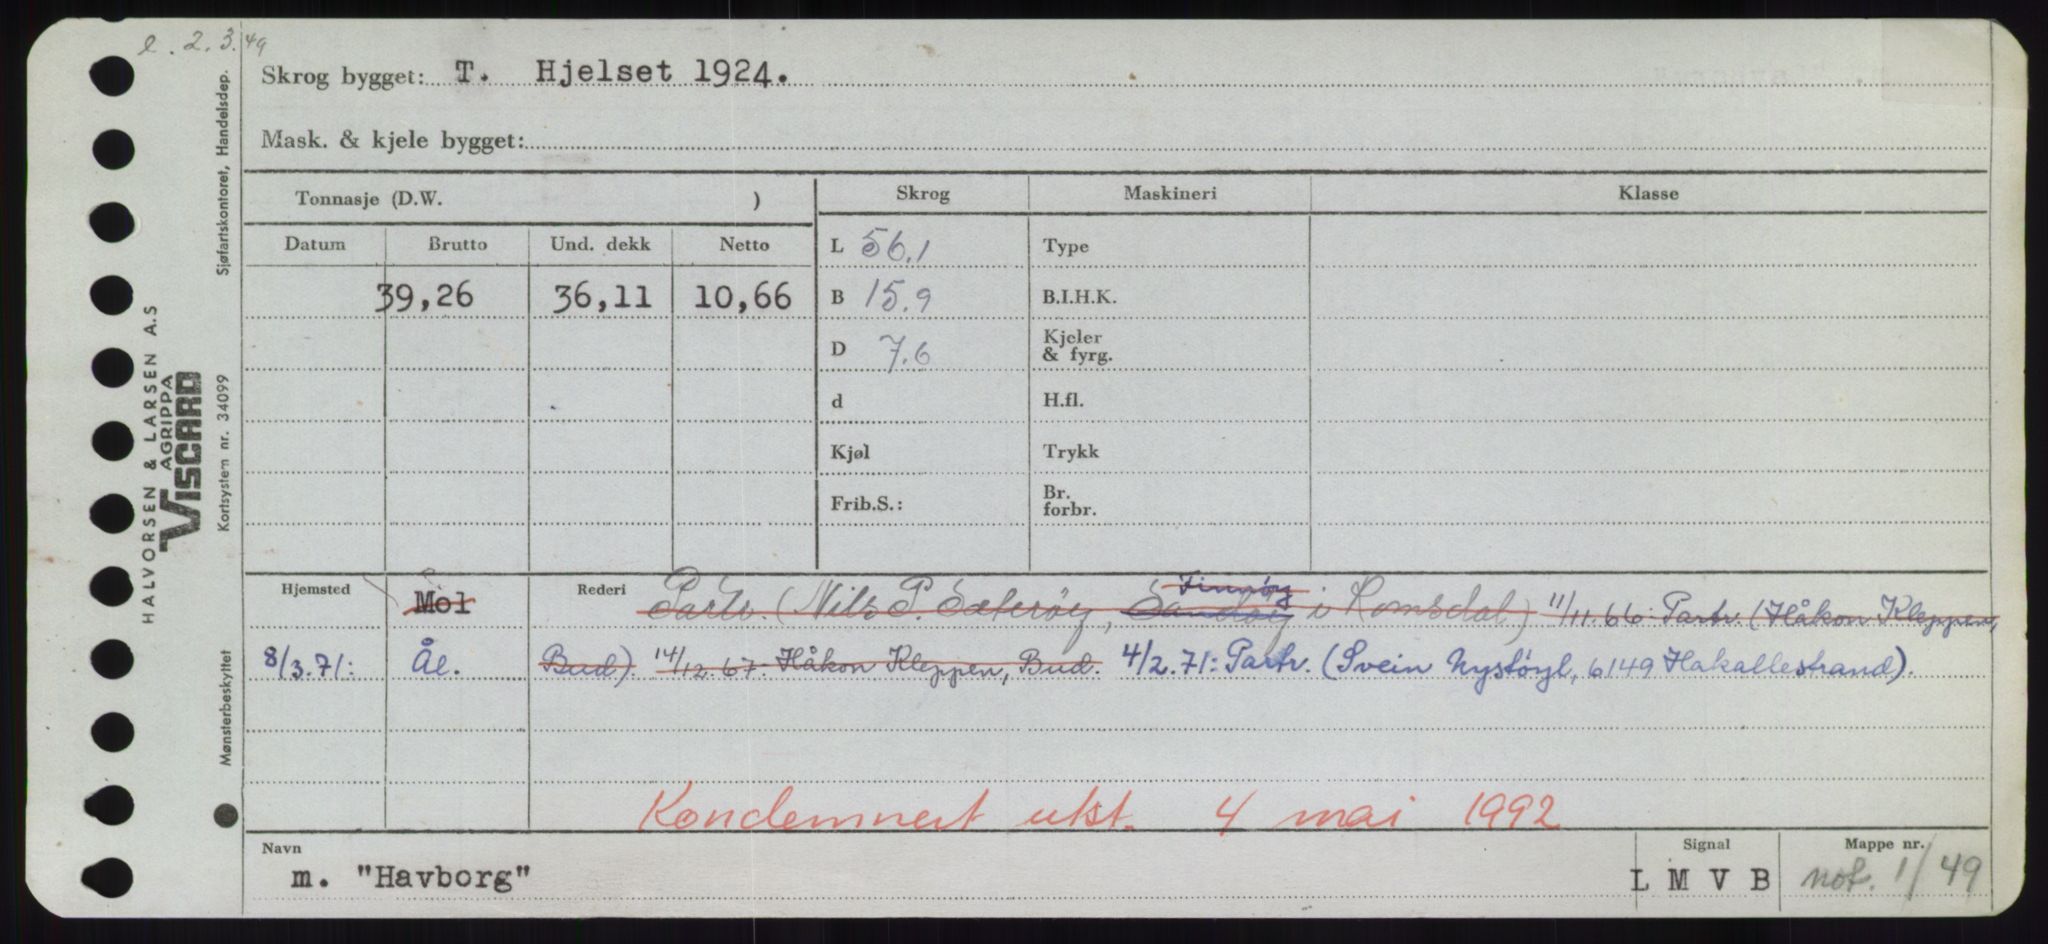 e. 2.3.49
Skrog bygget: T. Hjelset 1924.
Mask. & kjele bygget:
Tonnasje (D.W. )
Skrog
Maskineri
Klasse
Datum Brutto Und. dekk Netto
39,26 36,11 10,66
L 56,1
B 15.9
D 7.6
d
Kjøl
Frib.S.:
Type
B.I.H.K.
Kjeler
& fyrg.
H.fl.
Trykk
Br.
forbr.
Hjemsted Mol Rederi Partr. (Nils P. Sæterøy, Sandøy Finnøy i Romsdal) 11/11.66: Partr. (Håkon Kleppen,
8/3.71: Ål. Bud). 14/12.67. Håkon Kleppen, Bud. 4/2.71: Partr. (Svein Nystøyl, 6149 Hakallestrand).
Kondemnert utst. 4 mai 1992
Navn
m. "Havborg"
Signal
L M V B
Mappe nr.
not. 1/49
HALVORSEN & LARSEN A.S
AGRIPPA
VISCARD
Mønsterbeskyttet Kortsystem nr. 34099 Sjøfartskontoret, Handelsdep.